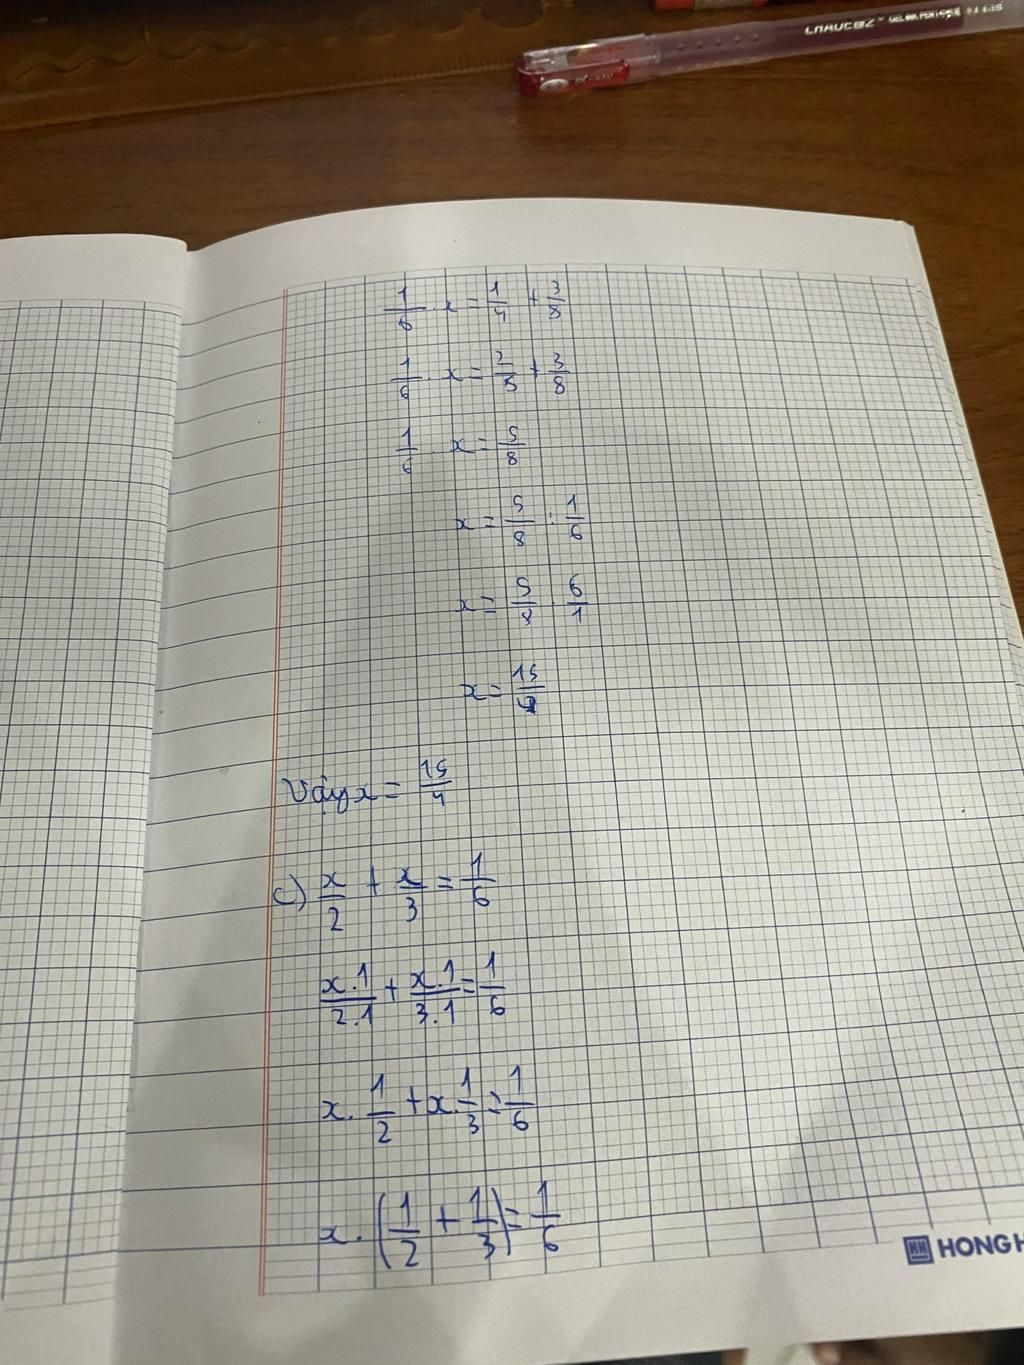 CHAUCER GEL INK PEN
1/6 . x = 1/4 + 3/8
1/6 . x = 2/8 + 3/8
1/6 . x = 5/8
x = 5/8 : 1/6
x = 5/8 . 6/1
x = 15/4
Vậy x = 15/4
c) x/2 + x/3 = 1/6
x.1/2.1 + x.1/3.1 = 1/6
x. 1/2 + x. 1/3 = 1/6
x. (1/2 + 1/3) = 1/6
HH HONG H